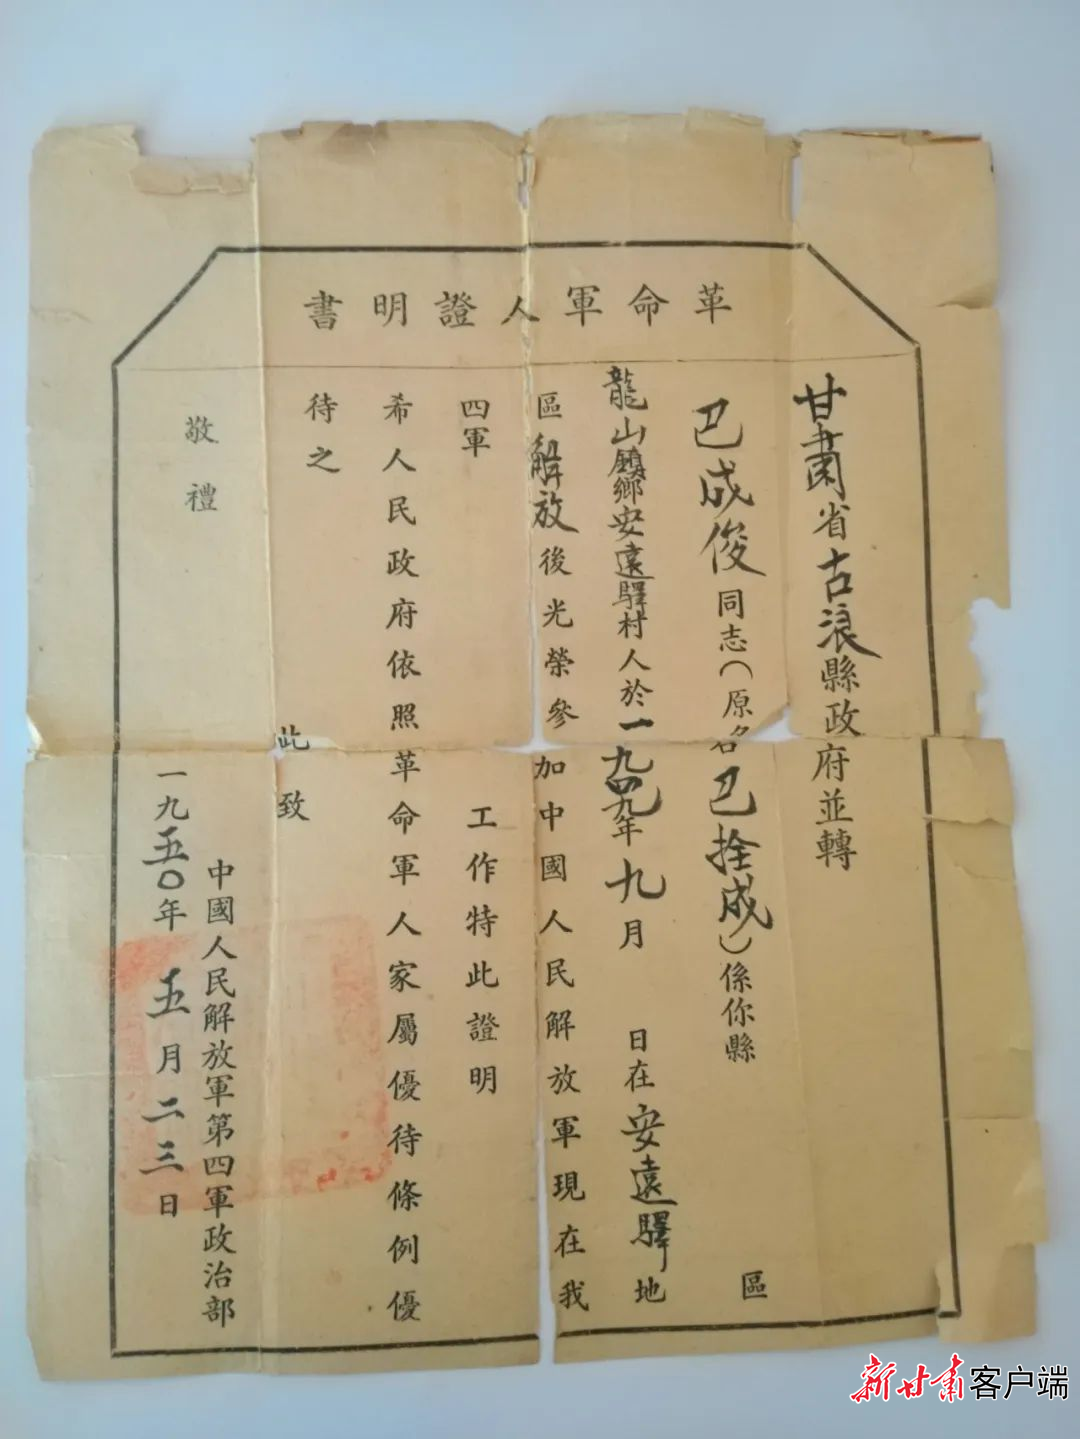 革命軍人證明書
甘肅省古浪縣政府並轉
巴成俊同志(原名巴拴成)係你縣 區
龍山鎮鄉安遠驛村人於一九四九年九月 日在安遠驛地
區解放後光榮參加中國人民解放軍現在我
四軍 工作特此證明
希人民政府依照革命軍人家屬優待條例優
待之
此致
敬禮
中國人民解放軍第四軍政治部
一九五〇年五月二三日
新甘肃客户端